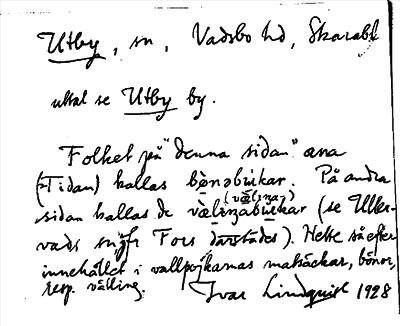 Utby, sn, Vadsbo hd, Skarabl
uttal se Utby by.
Folket på "denna sidan" om
(Tidan) kallas bònəbù̀kar. På andra
(vä̀liŋa,)
sidan kallas de vä̀liŋabùkar (se Uller-
vads sn, Fors därstädes). Hette så efter
innehållet i vallpojkarnas matsäckar, bönor,
resp. välling. Ivar Lindquist 1928